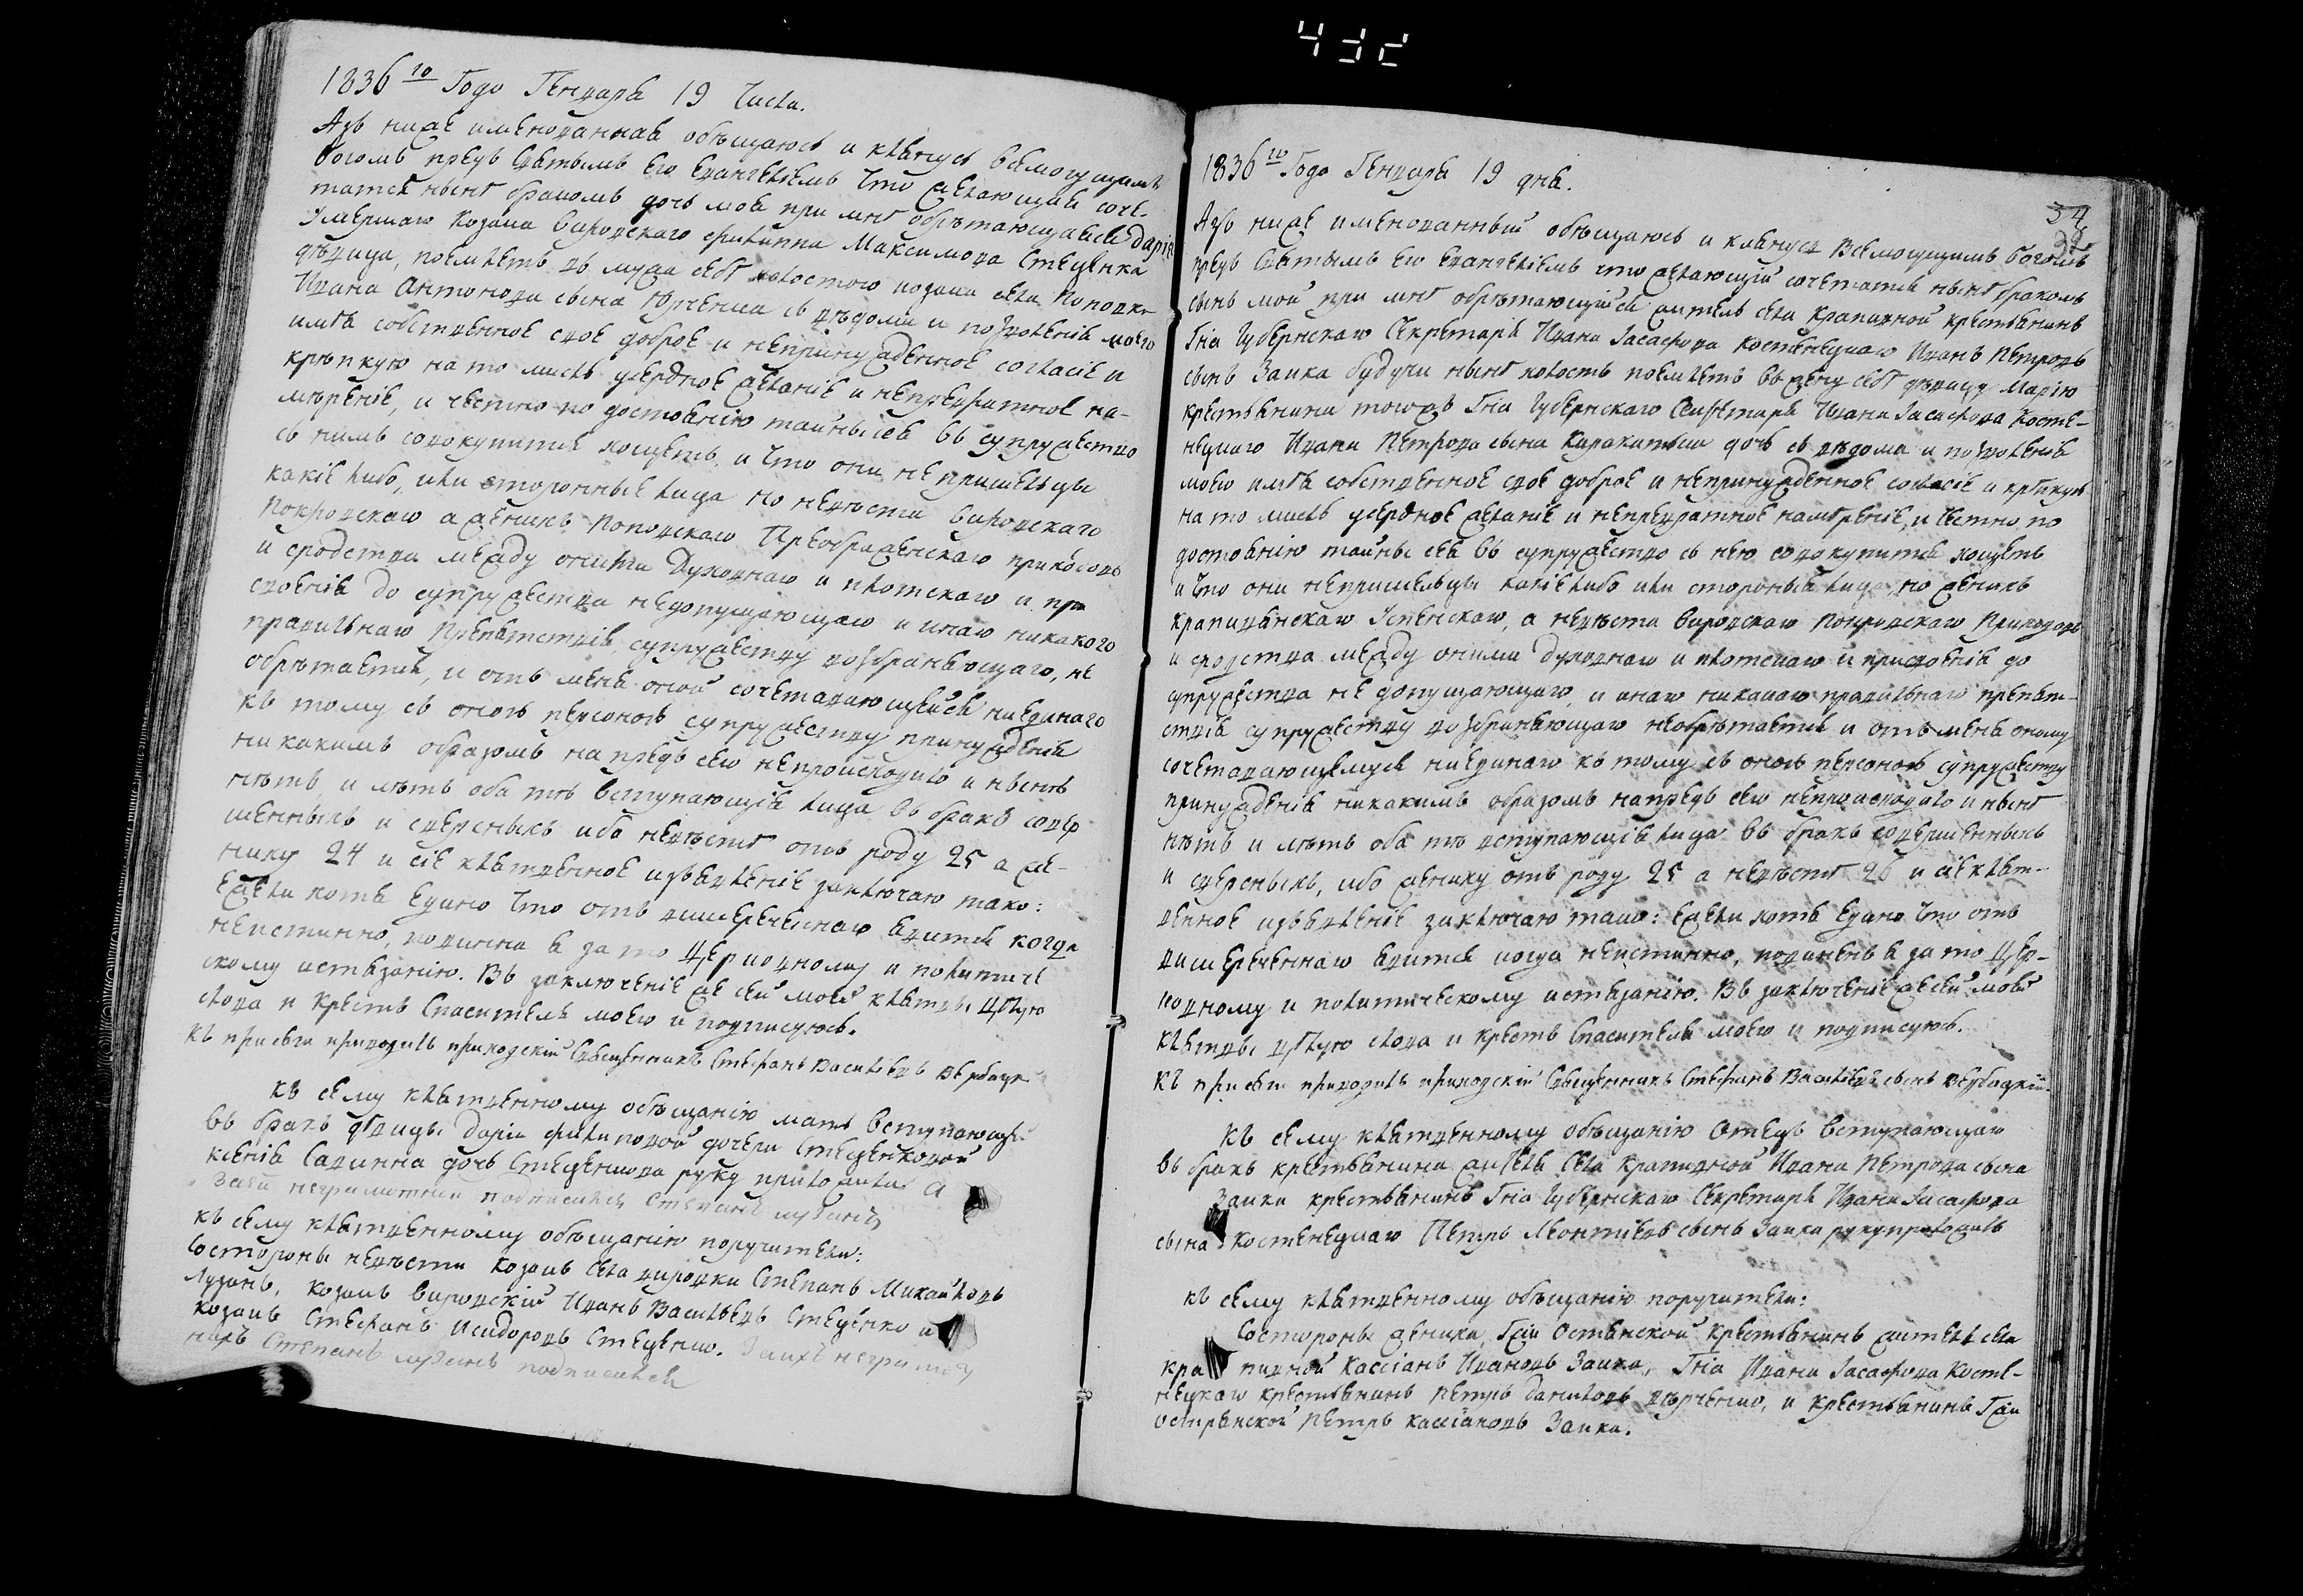 432
1836го Года Генваря 19 Числа.
Азъ ниже именованная обѣщаюсь и клянусь Всемогущимъ
богомъ предъ Святымъ Его Евангеліемъ что желающая соче-
татся нынѣ бракомъ дочь моя при мнѣ обрѣтающаяся Дарія
Умершаго козака Вировскаго Филиппа Максимова Стеценка
дѣвица, поемлетъ въ мужа себѣ холостого козака села Поповки
Ивана Антонова сына Юрченка съ вѣдома и позволенія моего
имѣя собственное свое доброе и непринужденное согласіе и
крѣпкую на то мысль усердное желаніе и непревратное на-
мѣреніе, и честно по достоянію тайны сея въ супружество
съ нимъ совокупится хощетъ, и что они не пришельцы
какіе либо, или сторонные лица но невѣста Вировскаго
Покровскаго а женихъ Поповскаго Преображенскаго приходовъ
и сродства между оними Духовнаго и плотскаго и при
своенія до супружества недопущающаго и инаго никакого
правильнаго препятствія, супружеству возбраняющаго, не
обрѣтается, и отъ меня оной сочетавающейся ниединаго
къ тому съ оною персоною супружеству принужденія
никакимъ образомъ напредь сего непроисходило и нынѣ
нѣтъ, и лѣтъ оба тѣ вступающія лица въ бракъ совер
шенныхъ и сверсныхъ ибо невѣстѣ отъ роду 25 а же-
ниху 24 и сіе клятвенное изъявленіе заключаю тако:
ежели хотя едино что отъ вишереченнаго явится когда
неистинно, повинна я за то Церковному и политиче
скому истязанію. Въ заключеніе же сей моей клятвы цѣлую
слова и Крестъ Спасителя моего и подписуюсь.
Къ присяги приводилъ приходскій Священникъ Стефанъ Васильевъ Вербицк
Къ сему клятвенному обѣщанію мать вступающей
въ бракъ дѣвицы Даріи Филиповой дочери Стеценковой
Ксенія Саввина дочь Стеценкова руку приложила а
За ей неграмотнии подписался Степанъ лузанъ
Къ сему клятвенному обѣщанію поручители:
Состороны невѣсти Козакъ села вировки Степанъ Михайловъ
Лузанъ, козакъ Вировскій Иванъ Васильевъ Стеценко и
козакъ Стефанъ Исидоровъ Стеценко. За ихъ неграмот
нихъ Степанъ лузанъ подписался
34
1836го Года Генваря 19 дня.
Азъ ниже именованный обѣщаюсь и клянусь Всемогущимъ богомъ
предъ Святымъ Его Евангеліемъ что желающій сочетатся нынѣ бракомъ
сынъ мой при мнѣ обрѣтающійся житель села Крапивной крестьянинъ
Гна Губернскаго Секретаря Ивана Іасафова Костенецкаго Иванъ Петровъ
сынъ Заика будучи нынѣ холостъ поемлетъ въ жену себѣ дѣвицу Марію
крестьянина тогожъ Гна Губернскаго Секретаря Ивана Іасафова Косте-
нецкаго Ивана Петрова сына дочь съ вѣдома и позволенія
моего имѣя собственное свое доброе и непринужденное согласіе и крѣпкую
на то мысль усердное желаніе и непревратное намѣреніе, и честно по
достоянію тайны сея въ супружество съ нею совокупится хощетъ
и что они непришельцы какіе либо или сторонныя лица, но женихъ
крапивянскаго Успенскаго, а невѣста Вировскаго Покровскаго Приходовъ
и сродства между оними духовнаго и плотскаго и присвоенія до
супружества не допущающаго, и инаго никакого правильнаго препят-
ствія супружеству возбраняющаго необрѣтается и отъ меня оному
сочетавающемуся ниединаго къ тому съ оною персоною супружеству
принужденія никакимъ образомъ напредь сего непроисходило и нынѣ
нѣтъ и лѣтъ оба тѣ вступающія лица въ бракъ совершенныхъ
и сверсныхъ, ибо жениху отъ роду 25 а невѣстѣ 26 и сіе клят-
венное изъявленіе заключаю тако: ежели хотя едино что отъ
вишереченнаго явится когда неистинно, повиненъ я за то Цер-
ковному и политическому истязанію. Въ заключеніе же сей моей
клятвы цѣлую слова и крестъ Спасителя моего и подписуюсь.
Къ присяги приводилъ приходскій Священникъ Стефанъ Васильевъ сынъ Вербицкій
Къ сему клятвенному обѣщанію Отецъ вступающаго
въ бракъ крестьянина жителя села Крапивной Ивана Петрова сына
Заики крестьянинъ Гна Губернскаго Секретаря Ивана Іасафова
сына Костенецкаго Петръ Леонтіевъ сынъ Заика руку приложилъ
Къ сему клятвенному обѣщанію поручители:
Состороны жениха, Гжи Остянской крестьянинъ житель села
крапивной Кассіанъ Ивановъ Заика, Гна Ивана Іасафова Косте-
нецкаго крестьянинъ Петръ Даниловъ, и крестьянинъ Гжи
Петръ Кассіановъ Заика.